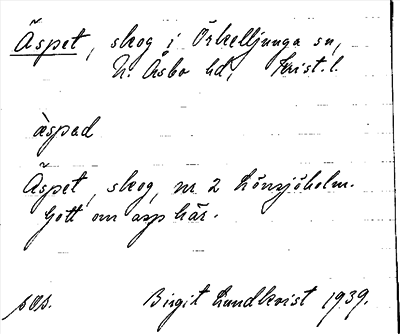 Äspet, skog i Örkelljunga sn,
N. Åsbo hd, Krist. l.
äspad
Äspet, skog, nr 2 Lönsjöholm.
Gott om asp här.
sos.   Birgit Lundkvist 1939.